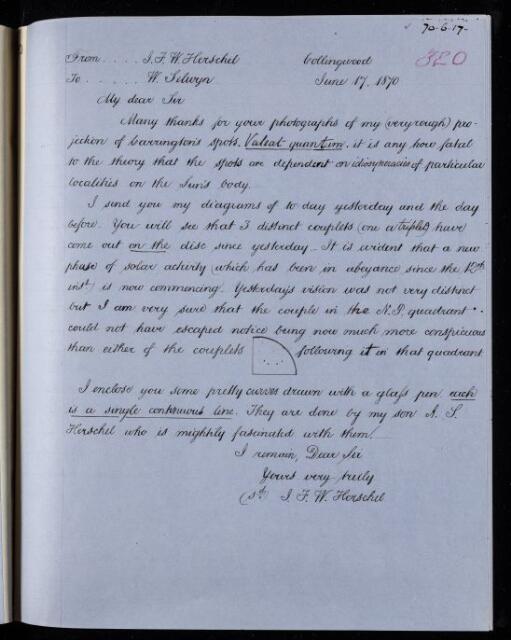 70-6-17-
320
From . . . . J. F. W. Herschel Collingwood
To . . . . . . W. Selwyn June 17, 1870
My dear Sir
Many thanks for your photographs of my (very rough) pro-
jection of Carrington's spots. Valeat quantum. it is any how fatal
to the theory that the spots are dependent on idiosyncracies of particular
localities on the Sun's body.
I send you my diagrams of to day yesterday and the day
before. You will see that 3 distinct couplets (one a triplet) have
come out on the disc since yesterday – It is evident that a new
phase of solar activity (which has been in abeyance since the 12th
inst) is now commencing. Yesterday's vision was not very distinct
but I am very sure that the couple in the N.P. quadrant
could not have escaped notice being now much more conspicuous
than either of the couplets following it in that quadrant
I enclose you some pretty curves drawn with a glass pen each
is a single continuous line. They are done by my son A. S.
Herschel who is mightily fascinated with them.
I remain, Dear Sir
Yours very truly
(sd) J. F. W. Herschel